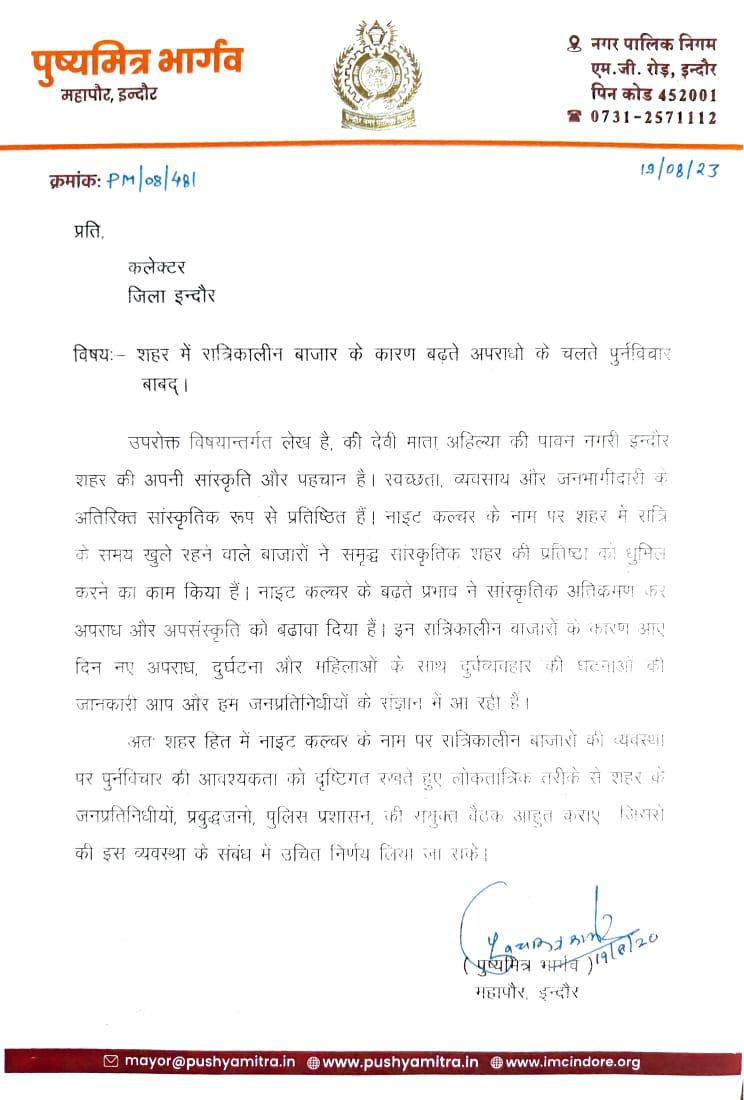 पुष्यमित्र भार्गव
महापौर, इन्दौर
नगर पालिक निगम
एम.जी. रोड़, इन्दौर
पिन कोड 452001
0731-2571112
क्रमांक: PM/08/481
19/08/23
प्रति,
कलेक्टर
जिला इन्दौर
विषयः– शहर में रात्रिकालीन बाजार के कारण बढ़ते अपराधो के चलते पुर्नविचार
बाबद्।
उपरोक्त विषयान्तर्गत लेख है, की देवी माता अहिल्या की पावन नगरी इन्दौर
शहर की अपनी सांस्कृति और पहचान है। स्वच्छता, व्यवसाय और जनभागीदारी के
अतिरिक्त सांस्कृतिक रूप से प्रतिष्ठित हैं। नाइट कल्चर के नाम पर शहर में रात्रि
के समय खुले रहने वाले बाजारों ने समृद्ध सांस्कृतिक शहर की प्रतिष्ठा को धुमिल
करने का काम किया हैं। नाइट कल्चर के बढते प्रभाव ने सांस्कृतिक अतिक्रमण कर
अपराध और अपसंस्कृति को बढावा दिया हैं। इन रात्रिकालीन बाजारों के कारण आए
दिन नए अपराध, दुर्घटना और महिलाओं के साथ दुर्वव्यवहार की घटनाओं की
जानकारी आप और हम जनप्रतिनिधीयों के संज्ञान में आ रही है।
अतः शहर हित में नाइट कल्चर के नाम पर रात्रिकालीन बाजारो की व्यवस्था
पर पुर्नविचार की आवश्यकता को दृष्टिगत रखते हुए लोकतांत्रिक तरीके से शहर के
जनप्रतिनिधीयों, प्रबुद्धजनो, पुलिस प्रशासन, की सयुक्त बैठक आहुत कराए जिससे
की इस व्यवस्था के संबंध में उचित निर्णय लिया जा सके।
( पुष्यमित्र भार्गव )
महापौर, इन्दौर
mayor@pushyamitra.in www.pushyamitra.in www.imcindore.org